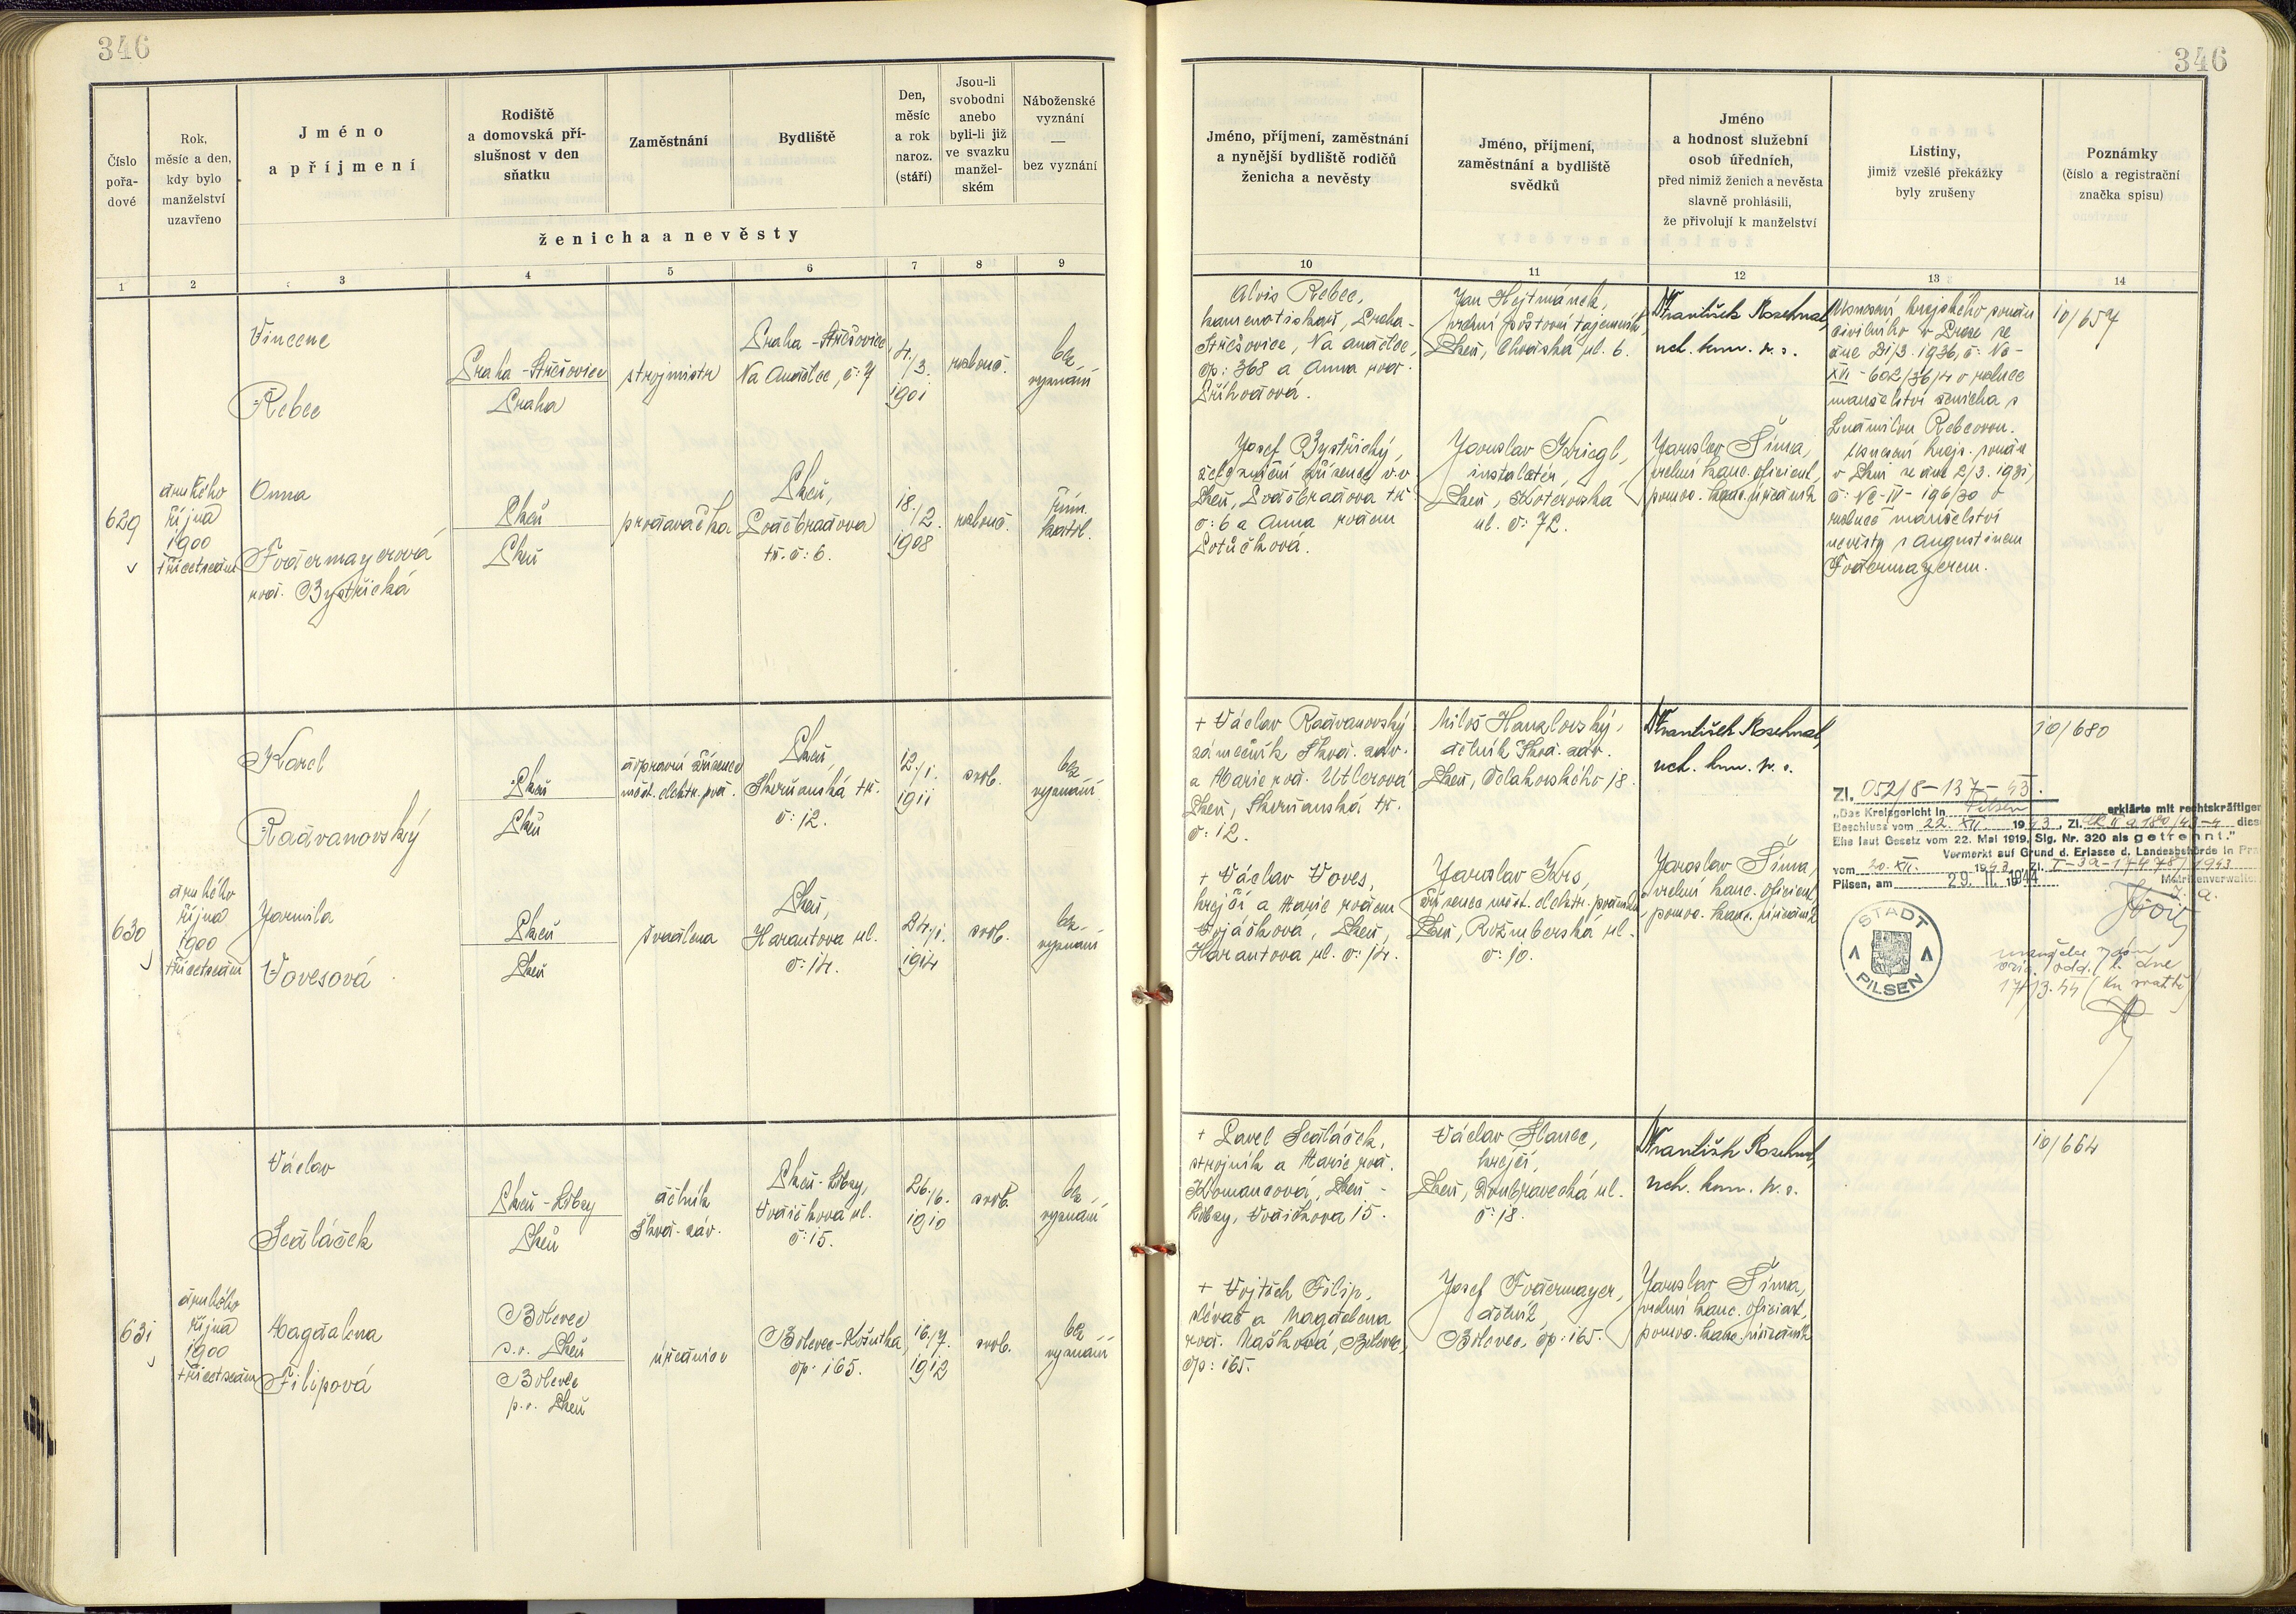 346
346
Číslo
pořa-
dové
Rok,
měsíc a den,
kdy bylo
manželství
uzavřeno
Jméno
a příjmení
Rodiště
a domovská pří-
slušnost v den
sňatku
Zaměstnání
Bydliště
Den,
měsíc
a rok
naroz.
(stáří)
Jsou-li
svobodni
anebo
byli-li již
ve svazku
manžel-
ském
Náboženské
vyznání
—
bez vyznání
ženicha a nevěsty
1 2 3 4 5 6 7 8 9
Jméno, příjmení, zaměstnání
a nynější bydliště rodičů
ženicha a nevěsty
Jméno, příjmení,
zaměstnání a bydliště
svědků
Jméno
a hodnost služební
osob úředních,
před nimiž ženich a nevěsta
slavně prohlásili,
že přivolují k manželství
Listiny,
jimiž vzešlé překážky
byly zrušeny
Poznámky
(číslo a registrační
značka spisu)
10 11 12 13 14
629
druhého
října
1900
třicetsedm
Vincenc
Řebec
Praha-Střešovice
Praha
strojmistr
Praha-Střešovice
Na Andělce, č: 7
4./3.
1901
rozlouč.
bez
vyznání
Anna
Fodermayerová
roz. Bystřická
Plzeň
Plzeň
prodavačka
Plzeň,
Poděbradova
tř. č: 6.
18./2.
1908
rozlouč.
řím.
katol.
Alois Řebec,
kamenotiskař, Praha-
Střešovice, Na Andělce,
čp: 368 a Anna roz.
Příhodová.
Josef Bystřický,
železniční zřízenec v.v.
Plzeň, Poděbradova tř.
č: 6 a Anna rozen
Potůčková.
Jan Hejtmánek,
vrchní poštovní tajemník,
Plzeň, Chodská ul. 6.
Jaroslav Kriegl,
instalatér,
Plzeň, Koterovská
ul. č: 72.
František Rosehnal,
uch. kom. r. s.
Jaroslav Šíma,
vrchní kanc. oficiant,
pomoc. kanc. úředník
Usnesení krajského soudu
civilního v Praze ze
dne 21/3. 1936, č: Nc-
XVI - 602/36/4 o rozluce
manželství ženicha s
Ludmilou Řebcovou.
Usnesení kraj. soudu
v Plzni ze dne 2/3. 1931,
č: Nc-IV- 196/30 o
rozluce manželství
nevěsty s Augustinem
Fodermayerem.
10/657
630
druhého
října
1900
třicetsedm
Karel
Radvanovský
Plzeň
Plzeň
dopravní zřízenec
měst. elektr. pod.
Plzeň,
Skvrňanská tř.
č: 12.
12./1.
1911
svob.
bez
vyznání
Jarmila
Vovesová
Plzeň
Plzeň
švadlena
Plzeň,
Harantova ul.
č: 14.
24./1.
1914
svob.
bez
vyznání
+ Václav Radvanovský
zámečník Škod. záv.
a Marie roz. Utlerová
Plzeň, Skvrňanská tř.
č: 12.
+ Václav Voves,
krejčí a Marie rozen
Vojáčková, Plzeň,
Harantova ul. č: 14.
Miloš Hanzlovský,
dělník Škod. záv.
Plzeň, Čelakovského 18.
Jaroslav Krs,
zřízenec měst. elektr. podniků
Plzeň, Rožmberská ul.
č: 10.
František Rosehnal,
uch. kom. r. s.
Jaroslav Šíma,
vrchní kanc. oficiant,
pomoc. kanc. úředník
10/680
Zl. 052/8-137-43.
„Das Kreisgericht in Pilsen erklärte mit rechtskräftigem
Beschluss vom 22. XII. 1943, Zl. 180/43-4 diese
Ehe laut Gesetz vom 22. Mai 1919, Slg. Nr. 320 als getrennt."
Vermerkt auf Grund d. Erlasse d. Landesbehörde in Prag
vom 20. XII. 1943 Zl. I-3a-17478/1943
Pilsen, am 29. II. 1944 Matrikenverwalter
STADT
PILSEN
17/3.44
631
druhého
října
1900
třicetsedm
Václav
Sedláček
Plzeň-Lobzy
Plzeň
dělník
Škod. záv.
Plzeň-Lobzy,
Vodičkova ul.
č: 15.
26./6.
1910
svob.
bez
vyznání
Magdalena
Filipová
Bolevec
p.o. Plzeň
Bolevec
p.o. Plzeň
úřednice
Bolevec-Košutka,
čp: 165.
16./7.
1912
svob.
bez
vyznání
+ Pavel Sedláček,
strojník a Marie roz.
Komancová, Plzeň-
Lobzy, Vodičkova 15.
+ Vojtěch Filip,
slévač a Magdalena
roz. Mašková, Bolevec,
čp: 165.
Václav Slanec,
krejčí,
Plzeň, Doubravecká ul.
č: 18.
Josef Fodermayer,
dělník,
Bolevec, čp: 165.
František Rosehnal,
uch. kom. r. s.
Jaroslav Šíma,
vrchní kanc. oficiant,
pomoc. kanc. úředník
10/664